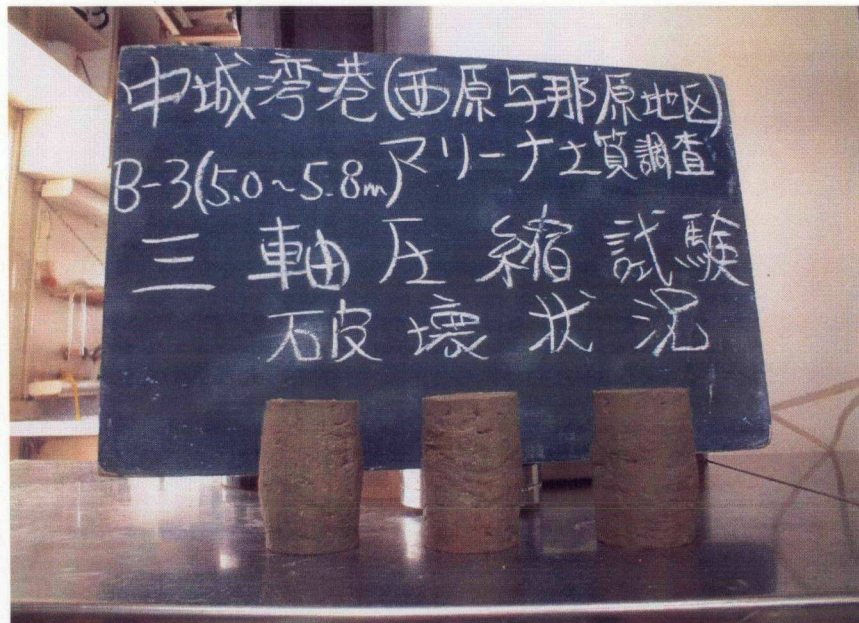 中城湾港(西原与那原地区)
B-3(5.0~5.8m)マリーナ土質調査
三軸圧縮試験
破壊状況